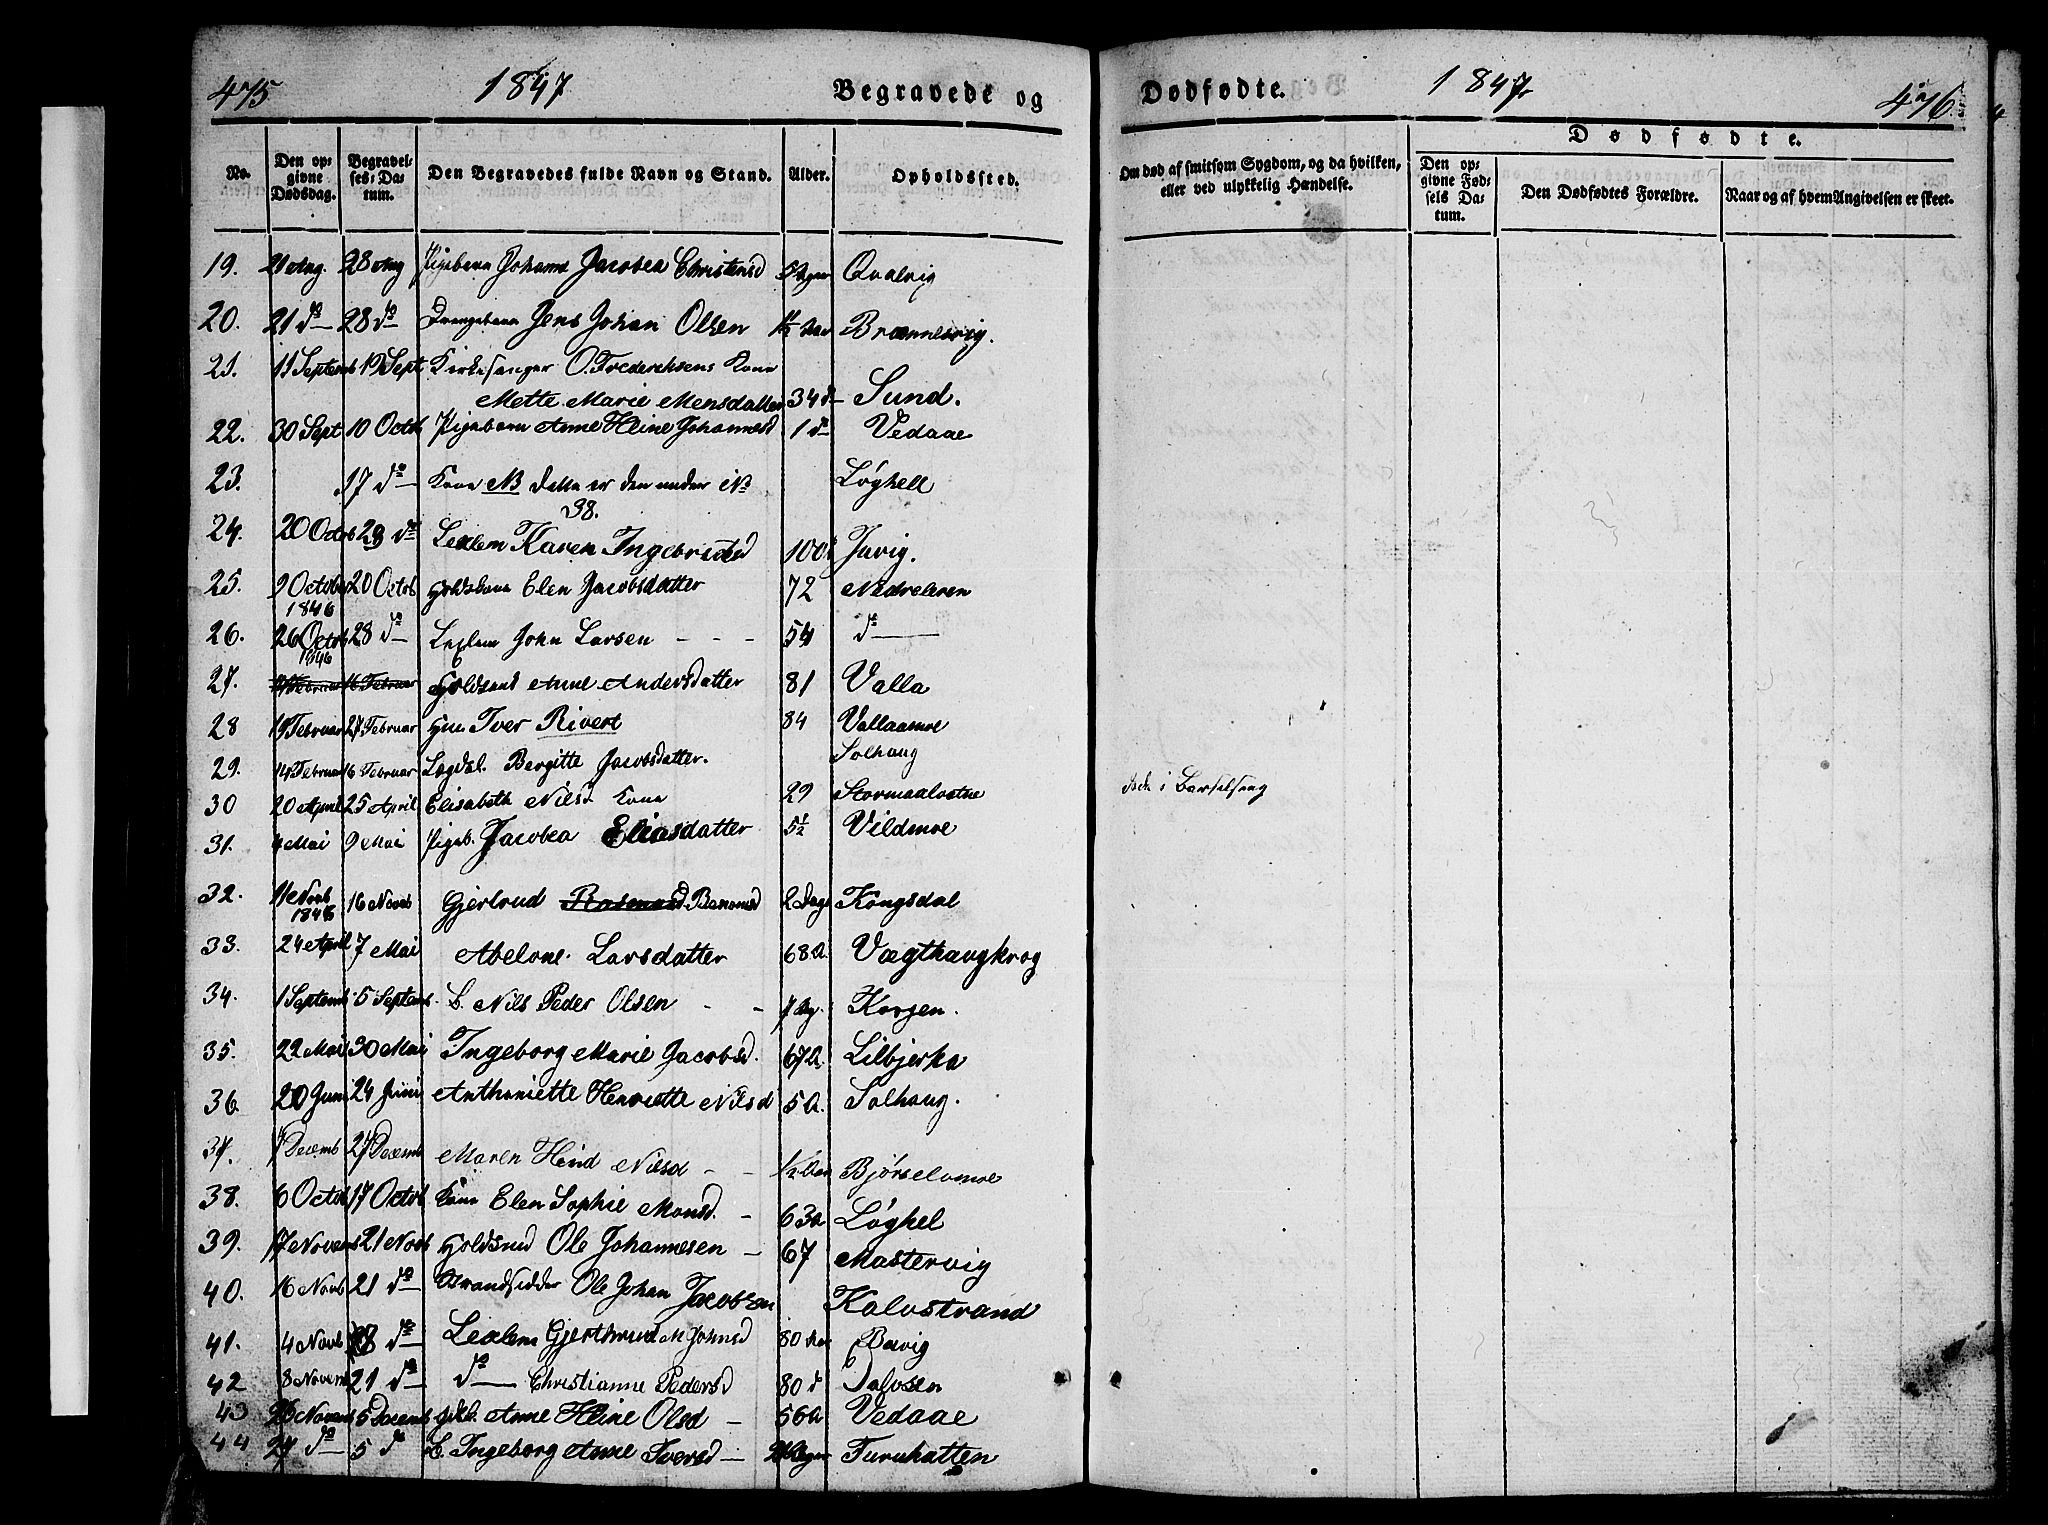 475 1847 Begravede og
No. Den opgivne Dødsdag. Begravelses-Datum. Den Begravedes fulde Navn og Stand. Alder. Opholdssted.
19. 21 Aug. 28 Aug Pigebarn Johanne Jacobea Christensd Qvalvig
20. 21 do 28 do Drengebarn Jens Johan Olsen 1½ Aar Brænnesvig.
21. 11 Septemb 19 Sept Kirkesanger O. Frederichsens Kone
Mette Marie Mensdatter 34 do Sund.
22. 30 Sept 10 Octb Pigebarn Anne Heine Johannesd 1 do Vedaae
23. 17 do Kone NB dette er den under No Løghell
38.
24. 20 Octob do Karen Ingebrigtsd 100 Javig.
25. 9 October 20 Octob Elen Jacobsdatter 72 Nedreleren
1846
26. 26 Octob 28 do John Larsen - - - 54 do
1846
27. 14 Februar 16 Februar Anne Andersdatter 81 Valla
28 19 Februar 27 Februar Iver Rivert 84 Vallaamoe
29. 14 Februar 16 Februar Bergitte Jacobsdatter. Solhaug
30 20 April 25 April Elisabeth Nilsd Kone 29
31. 4 Mai 9 Mai Pigeb. Jacobea Eliasdatter 5½ Vildmoe
32. 11 Novb 16 Novb Gjertrud Rasmusd 2 Dage Kongsdal
1846
33. 24 April 7 Mai Abelone Larsdatter 68 A. Vægthaugkrog
34. 1 Septemb 5 Septemb. B. Nils Peder Olsen - - 7 Dg. Korgen.
35. 22 Mai 30 Mai Ingeborg Marie Jacobsd. 67 A. Lilbjerka
36. 20 Juni 24 Juni Anthoniette Henriette Nilsd 5 A. Solhaug.
37. 7 Decemb 27 Decemb Maren Nilsd - - ½ Aar
38. 6 Octob 17 Octob Kone Elen Sophie Monsd. - 63 A Løghel
39. 17 Novemb 21 Novb Ole Johannesen - 67 Mastervig
40. 16 Novb 21 do Strandsidder Ole Johan Jacobsen Kalvstrand
41. 4 Novb 28 do Gjerthrud M Johnsd 80 Aar Bavig
42 8 Novemb 21 do do Christianne Pedersd 80 d Dalosen
43 26 Novemb 5 Decemb Anne Heine Olsd - 56 A Vedaae
44 27 do 5 do B. Ingeborg Anne Iversd - Furuhatten
Dødfødte. 1847. 476
Om død af smitsom Sygdom, og da hvilken, eller ved ulykkelig Hændelse.
Dødfødte.
Den opgivne Fødsels Datum. Den Dødfødtes Forældre. Naar og af hvem Angivelsen er skeet.
i Barselseng